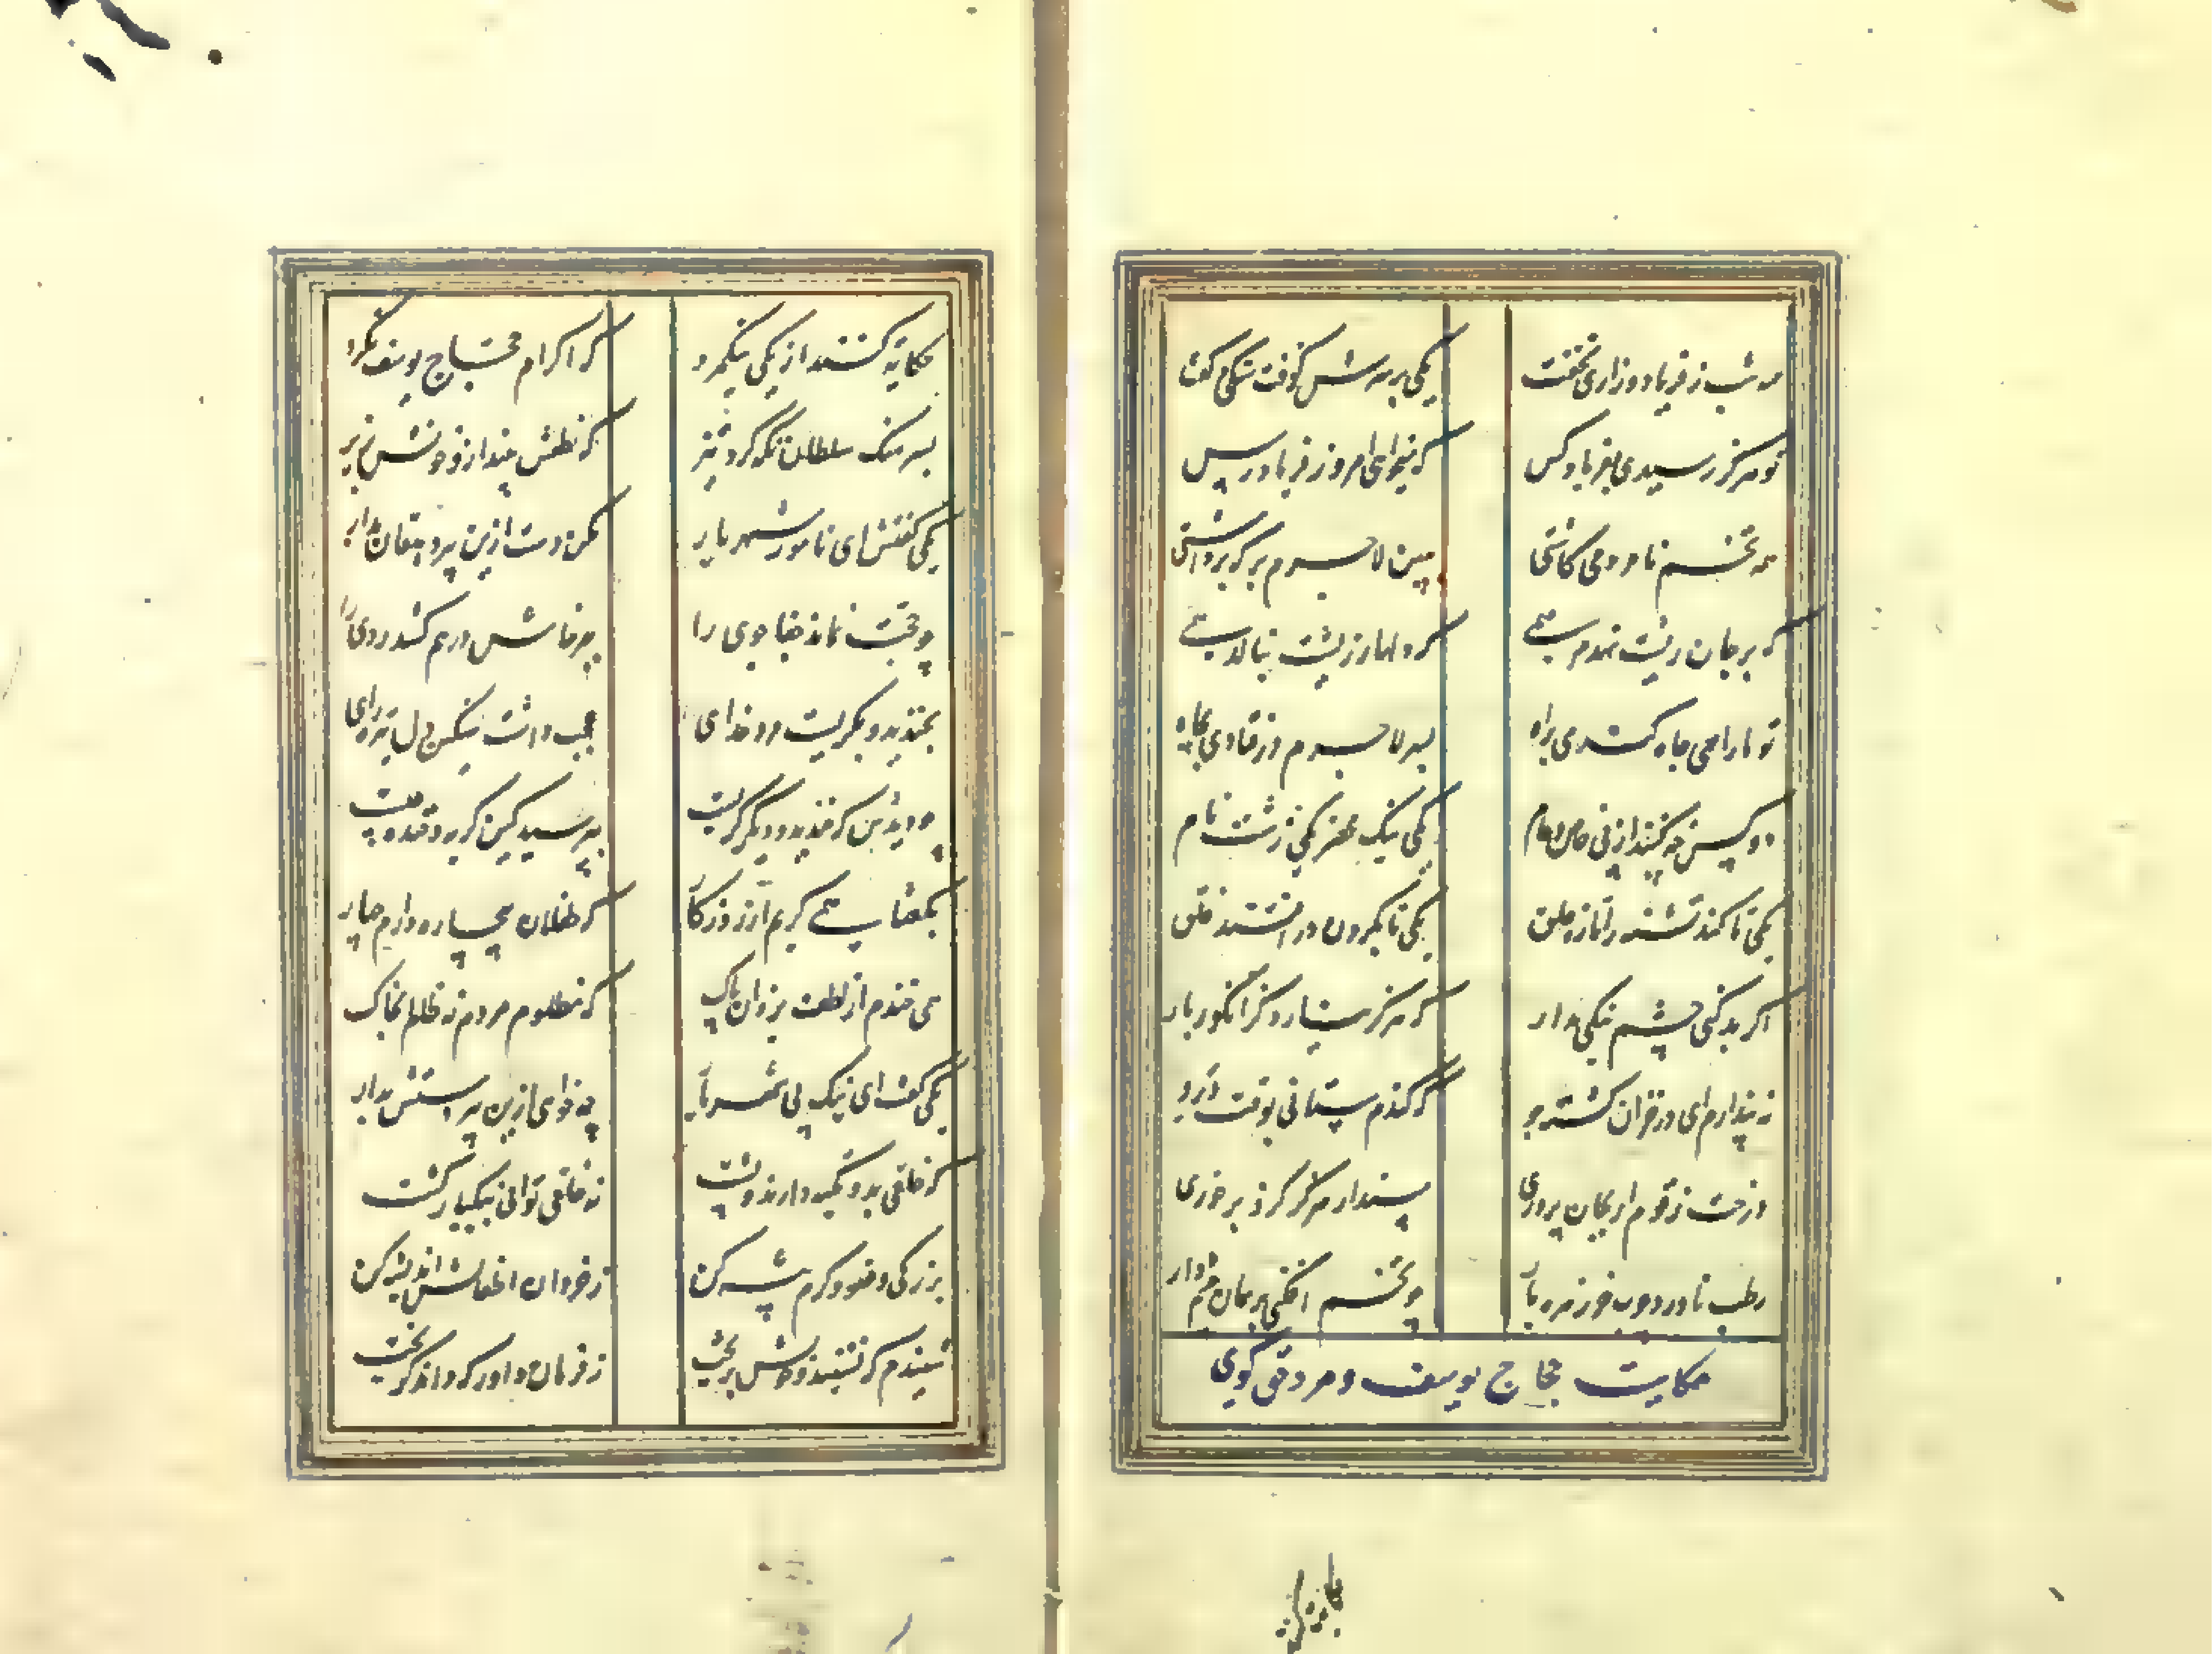 همه شب ز فریاد و زاری نخفت یکی بر سرش کوفت سنگی و گفت
تو هرگز رسیدی بفریاد کس که میخواهی امروز فریادرس
همه تخم نامردمی کاشتی ببین لاجرم بر که برداشتی
که بر جان ریشت نهد مرهمی که دلها ز ریشت بنالد همی
تو ما را همی چاه کندی براه بسر لاجرم در فتادی بچاه
دو کس چه کنند از پی خاص و عام یکی نیک محضر یکی زشت نام
یکی تا کند تشنه را تازه حلق یکی تا بگردن در افتند خلق
اگر بد کنی چشم نیکی مدار که هرگز نیارد گز انگور بار
نه پندارم ای در خزان کشته جو که گندم ستانی بوقت درو
درخت زقوم ار بجان پروری مپندار هرگز کزو برخوری
رطب ناورد چوب خرزهره بار چو تخم افکنی بر همان چشم دار
حکایت حجاج یوسف و مرد حق گوی
حکایت کنند از یکی نیکمرد که اکرام حجاج یوسف نکرد
بسرهنگ سلطان نگه کرد تیز که نطعش بینداز و خونش بریز
یکی گفتش ای نامور شهریار یکن دست ازین پیر دهقان بدار
چو حجت نماند جفاجوی را بپرخاش درهم کشد روی را
بخندید و بگریست مرد خدای عجب داشت سنگین دل تیره رای
چو دیدش که خندید و دیگر گریست بپرسید کین گریه و خنده چیست
بگفتا همی گریم از روزگار که طفلان بیچاره دارم چهار
همی خندم از لطف یزدان پاک که مظلوم مردم نه ظالم بخاک
یکی گفت ای نیک پی شهریار چه خواهی ازین پیر دستش بدار
که خلقی بدو تکیه دارند و پشت نه خلقی توانی بیکبار کشت
بزرگی و عفو و کرم پیشه کن ز خردان اطفالش اندیشه کن
شنیدم که نشنید و خونش بریخت ز فرمان داور که داند گریخت